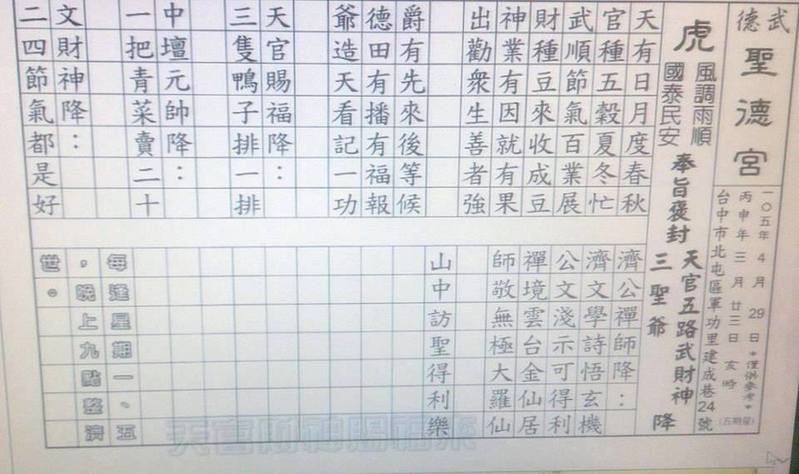 武德 聖德宮
一○五年4月29日*僅供參考*(五期星)
丙申年三月廿三日亥時
台中市北屯區軍功里建成巷24號
虎
風調雨順
國泰民安
奉旨褒封
天官五路武財神
三聖爺
降
天有日月度春秋
官種五穀夏冬忙
武順節氣百業展
財種豆來收成豆
神業有因就有果
出勸眾生善者強
爵有先來後等候
德田有播有福報
爺造天看記一功
天官賜福降：
三隻鴨子排一排
中壇元帥降：
一把青菜賣二十
文財神降：
二四節氣都是好
濟公禪師降：
濟文學詩悟玄機
公文淺示可得利
禪境雲台金仙居
師敬無極大羅仙
山中訪聖得利樂
每逢星期一、五
，晚上九點整濟
世。